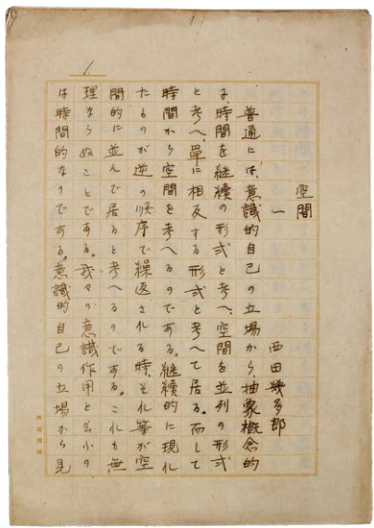 空間
一
西田幾多郎
普通には、意識的自己の立場から、抽象概念的
に、時間を継続の形式と考へ、空間を並列の形式
と考へ、単に相反する形式と考へて居る。而して
時間から空間を考へるのである。継続的に現れ
たものが逆の順序で繰返される時、それ等が空
間的に並んで居ると考へるのである。これも無
理ならぬことである。我々の意識作用と云ふの
は時間的なのである。意識的自己の立場から見